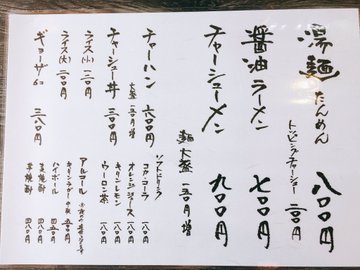 湯麺 たんめん 八〇〇円
トッピングチャーシュー 二〇〇円
醤油ラーメン 七〇〇円
チャーシューメン 九〇〇円
麺大盛 一五〇円増
チャーハン 六〇〇円
大盛 一五〇円増
チャーシュー丼 三〇〇円
ライス(小) 一〇〇円
ライス(大) 二〇〇円
ギョーザ6コ 三八〇円
ソフトドリンク
コカ・コーラ 一八〇
オレンジジュース 一八〇
キリンレモン 一八〇
ウーロン茶 一八〇
アルコール
キリンラガー中瓶 五〇〇円
ハイボール 四五〇円
麦焼酎 四八〇円
芋焼酎 四八〇円